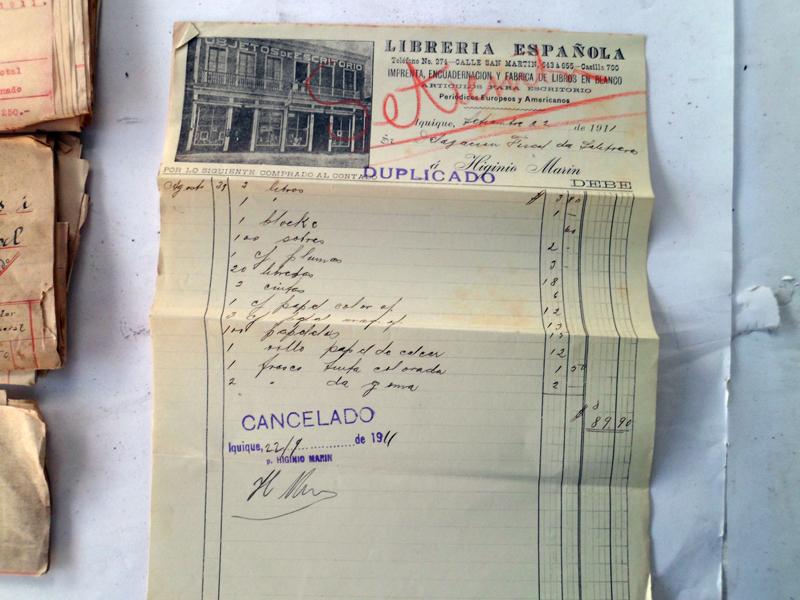 OBJETOS DE ESCRITORIO
LIBRERIA ESPAÑOLA
Teléfono No. 274—CALLE SAN MARTIN, 643 á 655—Casilla 700
IMPRENTA, ENCUADERNACION Y FABRICA DE LIBROS EN BLANCO
ARTICULOS PARA ESCRITORIO
Periódicos Europeos y Americanos
Iquique, Setiembre 22 de 1911
Fiscal de Salitreras
á Higinio Marin
POR LO SIGUIENTE COMPRADO AL CONTADO
DUPLICADO
DEBE
Agosto 2 libros $ 3
1 " 1 —
1 blocke 60
100 sobres 2 -
1 c/ plumas 3 -
20 libretas 18
2 cintas 6
1 c/ papel color of 12
13
100 15
1 rollo papel de calcar 12
1 frasco tinta colorada 1 50
2 " da goma 2 —
$ 89.90
CANCELADO
Iquique, 22/9 de 1911
p. HIGINIO MARIN